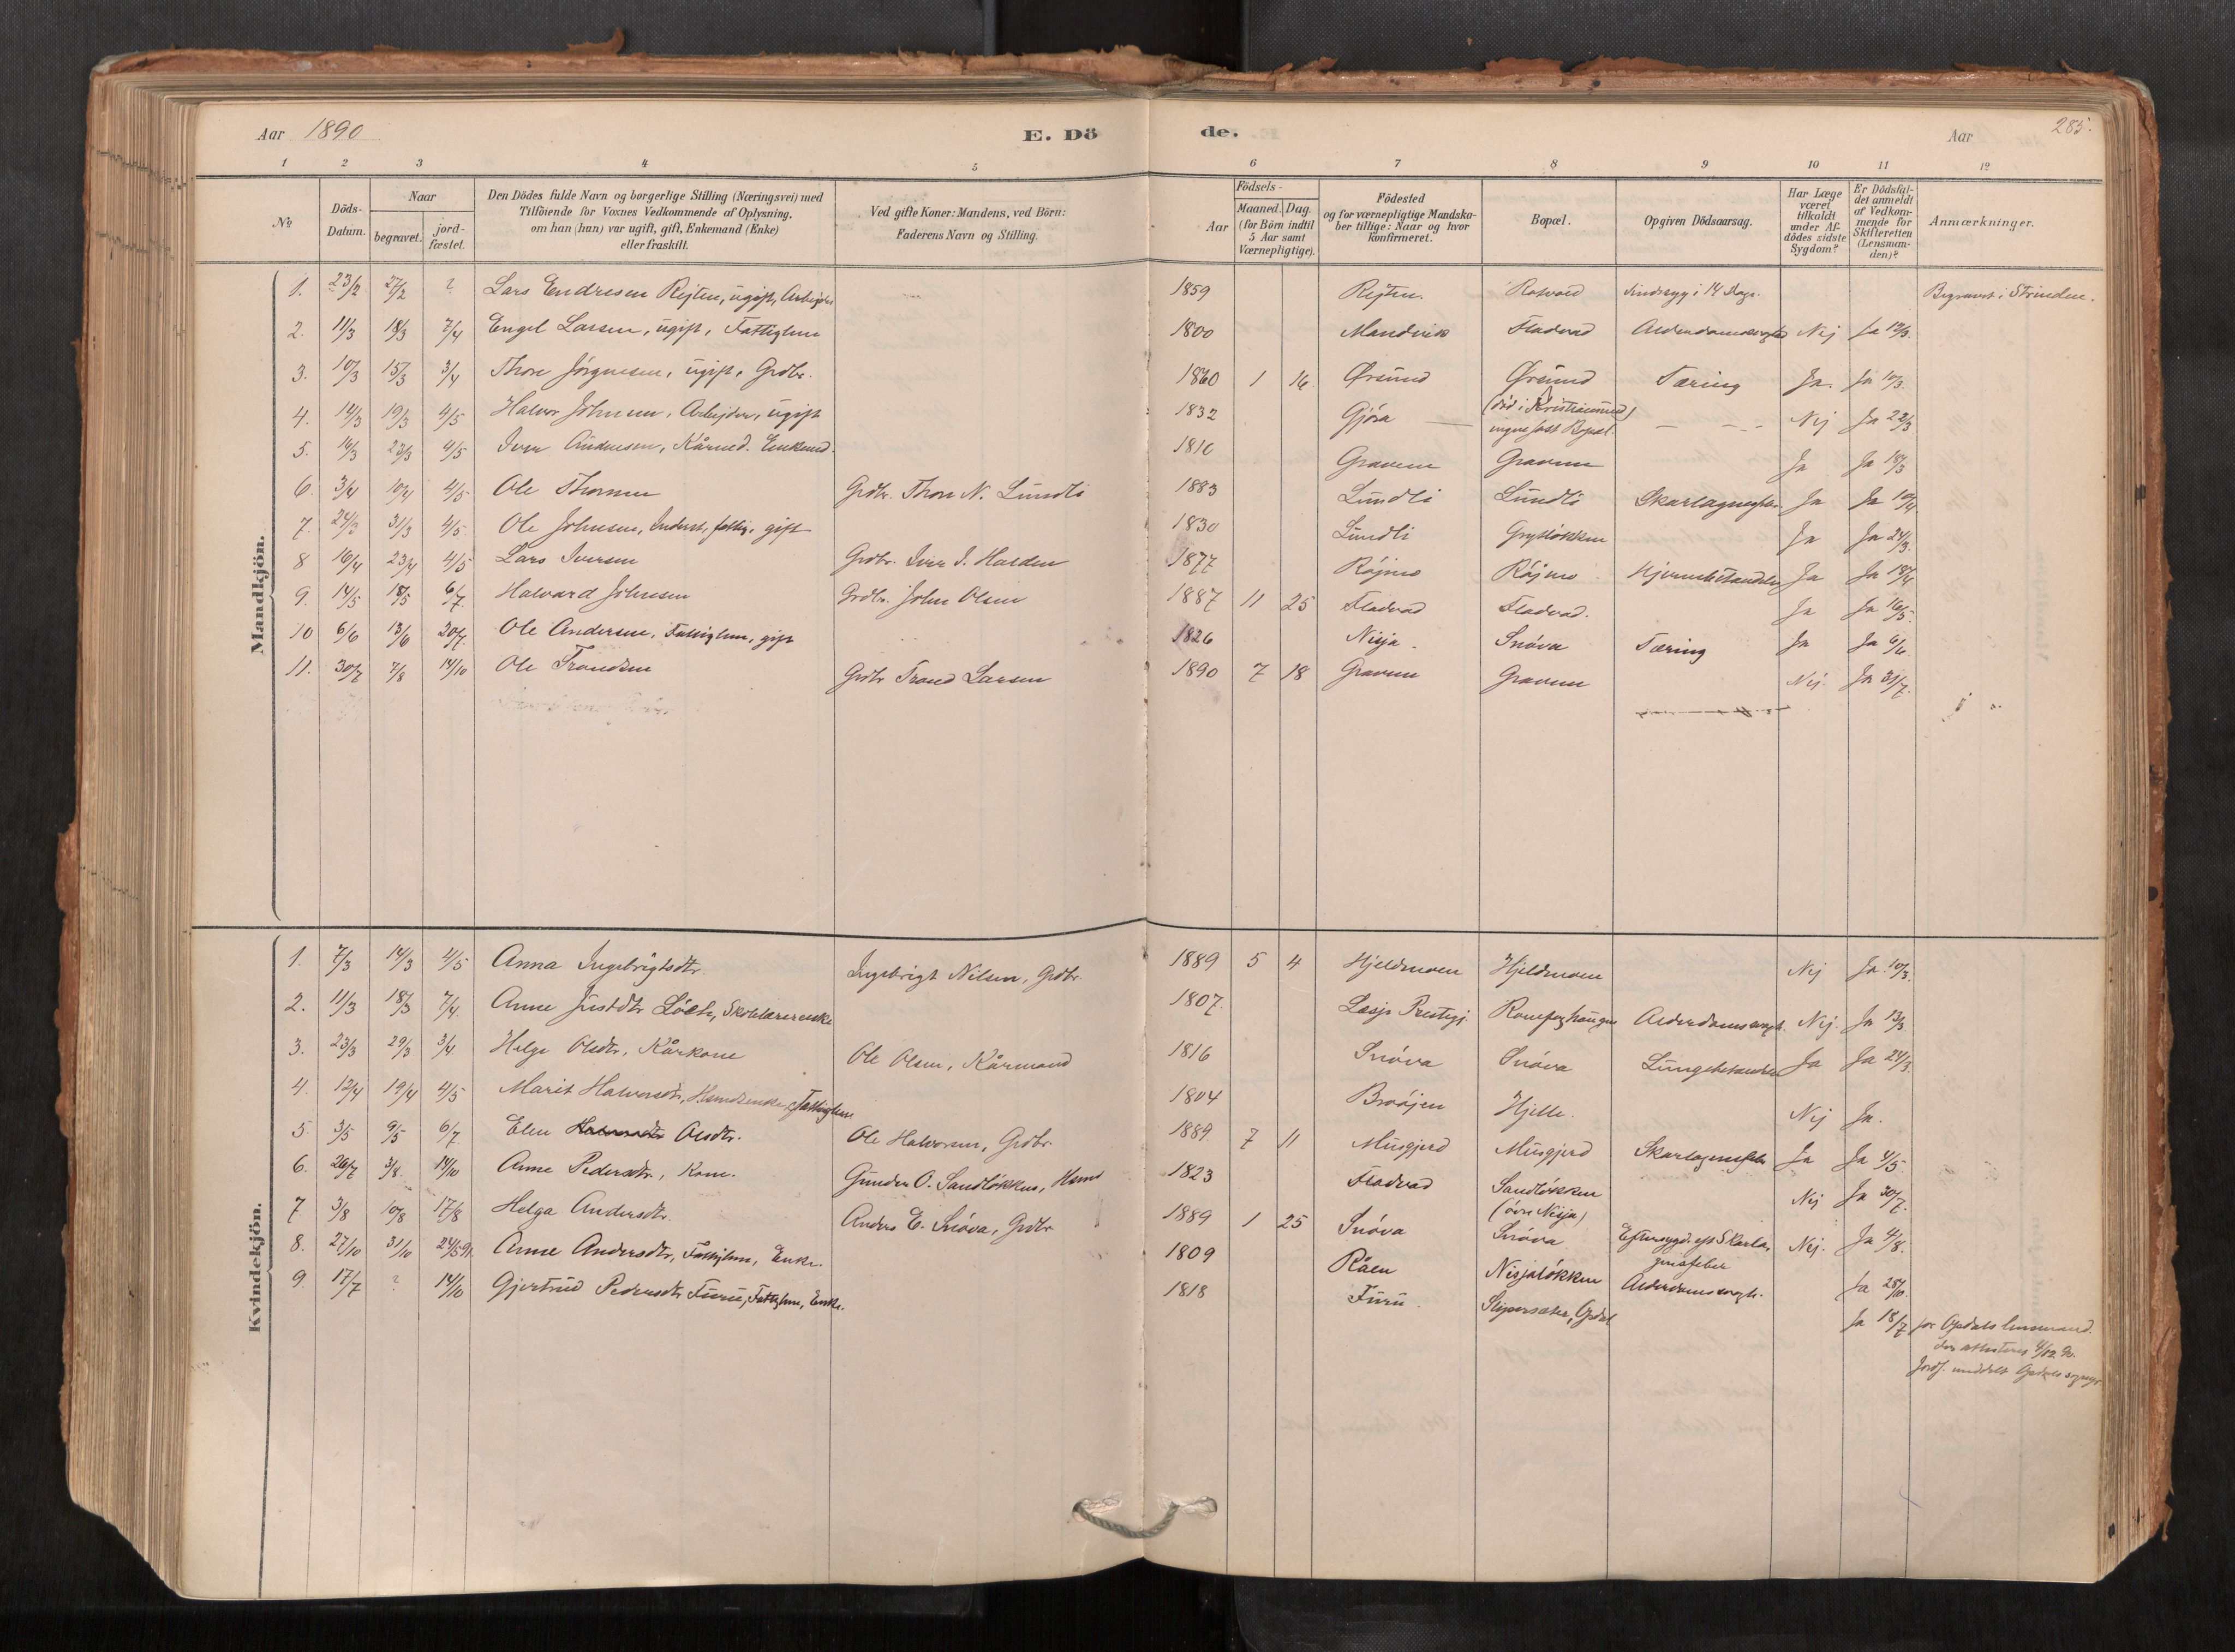 Aar 1890 E. Dö de. Aar 285.
1 2 3 4 5 6 7 8 9 10 11 12
No
Döds-Datum.
Naar
begravet.
jord-fæstet.
Den Dödes fulde Navn og borgerlige Stilling (Næringsvei) med
Tilföiende for Voxnes Vedkommende af Oplysning,
om han (hun) var ugift, gift, Enkemand (Enke)
eller fraskilt.
Ved gifte Koner: Mandens, ved Börn:
Faderens Navn og Stilling.
Födsels-
Aar
Maaned. Dag.
(for Börn indtil
5 Aar samt
Værnepligtige).
Födested
og for værnepligtige Mandska-
ber tillige: Naar og hvor
konfirmeret.
Bopæl.
Opgiven Dödsaarsag.
Har Læge
været
tilkaldt
under Af-
dödes sidste
Sygdom?
Er Dödsfal-
det anmeldt
af Vedkom-
mende for
Skifteretten
(Lensman-
den)?
Anmærkninger.
Mandkjön.
1. 23/2 27/2 ? Lars Endresen Rejten, ugift, Arbejder 1859 Rejten. Rotvold Sindssyg i 14 Dage. Begravet i Strinden.
2. 11/3 18/3 7/4 Engel Larsen, ugift, Fattiglem 1800 Mandvik Fladvad Alderdomssvaghed Nej Ja 12/3.
3. 10/3 15/3 3/4 Thore Jörgensen, ugift, Grdbr. 1860 1 16 Ørsund Ørsund Tæring Ja. Ja 10/3.
4. 12/3 19/3 4/5 Halvor Johnsen, Arbejder, ugift 1832 Gjöra (död i Kristiansund) Nej Ja 22/3
ingen fast Bopæl.
5. 16/3 23/3 4/5 Iver Andresen, Kårmd. Enkemd. 1810 Gravem Gravem Ja Ja 18/3
6. 3/4 10/4 4/5 Ole Thoresen Grdbr. Thore N. Lundli 1883 Lundli Lundli Skarlagensfeber Ja Ja 10/4
7. 24/3 31/3 4/5. Ole Johnsen, Inderst, fattig, gift 1830 Lundli Grytløkken Ja Ja 24/3.
8 16/4 23/4 4/5 Lars Iversen Grdbr. Iver I. Halden 1877 Röjmo Röjmo Hjernebetændelse Ja Ja 18/4
9. 14/5 18/5 6/7 Halvard Johnsen Grdbr. John Olsen 1887 11 25 Fladvad Fladvad. Ja Ja 16/5.
10 6/6 13/6 20/7. Ole Andersen, Fattiglem, gift 1826 Nisja. Snöva Tæring Ja Ja 6/6
11. 30/7 7/8 14/10 Ole Trondsen Grdbr Trond Larsen 1890 7 18 Gravem Gravem Nej. Ja 31/7.
Kvindekjön.
1. 7/3 14/3 4/5 Anna Ingebrigtsdtr. Ingebrigt Nilsen, Grdbr. 1889 5 4 Hjeldmoen Hjeldmoen Nej Ja 10/3.
2. 11/3 18/3 7/4. Anne Justdtr. Löset, Skolelærerenke 1807. Lesje Prestegj. Romfoghaugen Alderdomssvagh. Nej. Ja 13/3
3. 23/3 29/3 3/4 Helge Olsdtr., Kårkone Ole Olsen, Kårmand 1816 Snöva Snöva Lungebetændelse Ja Ja 24/3.
4. 12/4 19/4 4/5 Marit Halvorsdtr., Husmdsenke, Fattiglem 1804 Hjelle. Nej Ja.
5 3/5 9/5 6/7 Elen Olsdtr. Ole Halvorsen, Grdbr. 1889. 7 11 Musgjerd Musgjerd Skarlagensfeber Ja Ja 4/5.
6. 26/7 3/8. 14/10 Anne Pedersdtr., Kone. Gunder O. Sandløkken, Hsmd 1823 Fladvad Sandløkken Nej Ja 30/7.
(övre Nisja)
7 3/8 10/8 17/8 Helga Andersdtr. Anders E. Snöva, Grdbr 1889 1 25 Snöva Snöva Eftersygd. eft Skarla- Nej. Ja 4/8.
gensfeber
8. 27/10 31/10 24/5 91. Anne Andersdtr., Fattiglem, Enke. 1809 Råen Nisjaløkken Alderdomssvagh. Ja 28/10.
9. 17/7 ? 14/10 Gjertrud Pedersdtr Furu, Fattiglem, Enke. 1818 Furu. Opdal Ja 18/7 for Opdals lensmand.
Jordf. meddelt Opdals sognepr.